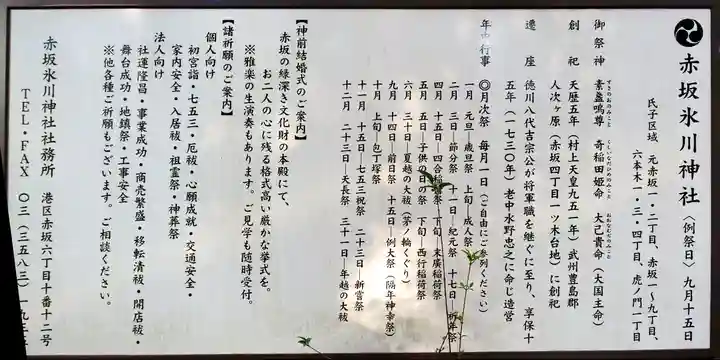 赤坂氷川神社〈例祭日〉九月十五日
氏子区域 元赤坂一・二丁目、赤坂一〜九丁目、
六本木一・三・四丁目、虎ノ門一丁目
御祭神 素盞嗚尊 奇稲田姫命 大己貴命(大国主命)
すさのおのみこと くしいなだひめのみこと おおなむぢのみこと
創祀 天暦五年(村上天皇九五一年)武州豊島郡
人次ヶ原(赤坂四丁目一ツ木台地)に創祀
遷座 徳川八代吉宗公が将軍職を継ぐに至り、享保十
五年(一七三〇年)老中水野忠之に命じ造営
年中行事 ◎月次祭 毎月一日(ご自由にご参列ください)
一月 元旦―歳旦祭 上旬―成人祭
二月 三日―節分祭 十一日―紀元祭 十七日―祈年祭
四月 十五日―四合稲荷祭 下旬―末廣稲荷祭
五月 五日―子供の日の祭 下旬―西行稲荷祭
六月 三十日―夏越の大祓(茅ノ輪くぐり)
九月 十四日―前日祭 十五日―例大祭(隔年神幸祭)
十月 上旬―包丁塚祭
十一月 十五日―七五三祝祭 二十三日―新嘗祭
十二月 二十三日―天長祭 三十一日―年越の大祓
【神前結婚式のご案内】
赤坂の緑深き文化財の本殿にて、
お二人の心に残る格式高い厳かな挙式を。
※雅楽の生演奏もあります。ご見学も随時受付。
【諸祈願のご案内】
個人向け
初宮詣・七五三・厄祓・心願成就・交通安全・
家内安全・入居祓・祖霊祭・神葬祭
法人向け
社運隆昌・事業成功・商売繁盛・移転清祓・開店祓・
舞台成功・地鎮祭・工事安全
※他各種ご祈願もございます。ご相談ください。
赤坂氷川神社社務所 港区赤坂六丁目十番十二号
TEL・FAX 〇三(三五八三)一九三五